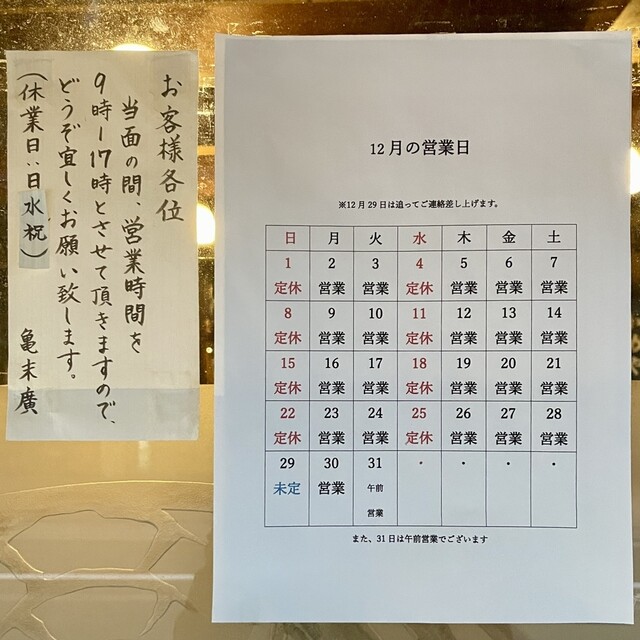 お客様各位
当面の間、営業時間を
9時-17時とさせて頂きますので、
どうぞ宜しくお願い致します。
(休業日:日水祝)
亀末廣
12月の営業日
※12月29日は追ってご連絡差し上げます。
日 月 火 水 木 金 土
1 2 3 4 5 6 7
定休 営業 営業 定休 営業 営業 営業
8 9 10 11 12 13 14
定休 営業 営業 定休 営業 営業 営業
15 16 17 18 19 20 21
定休 営業 営業 定休 営業 営業 営業
22 23 24 25 26 27 28
定休 営業 営業 定休 営業 営業 営業
29 30 31 ・ ・ ・ ・
未定 営業 午前
営業
また、31日は午前営業でございます